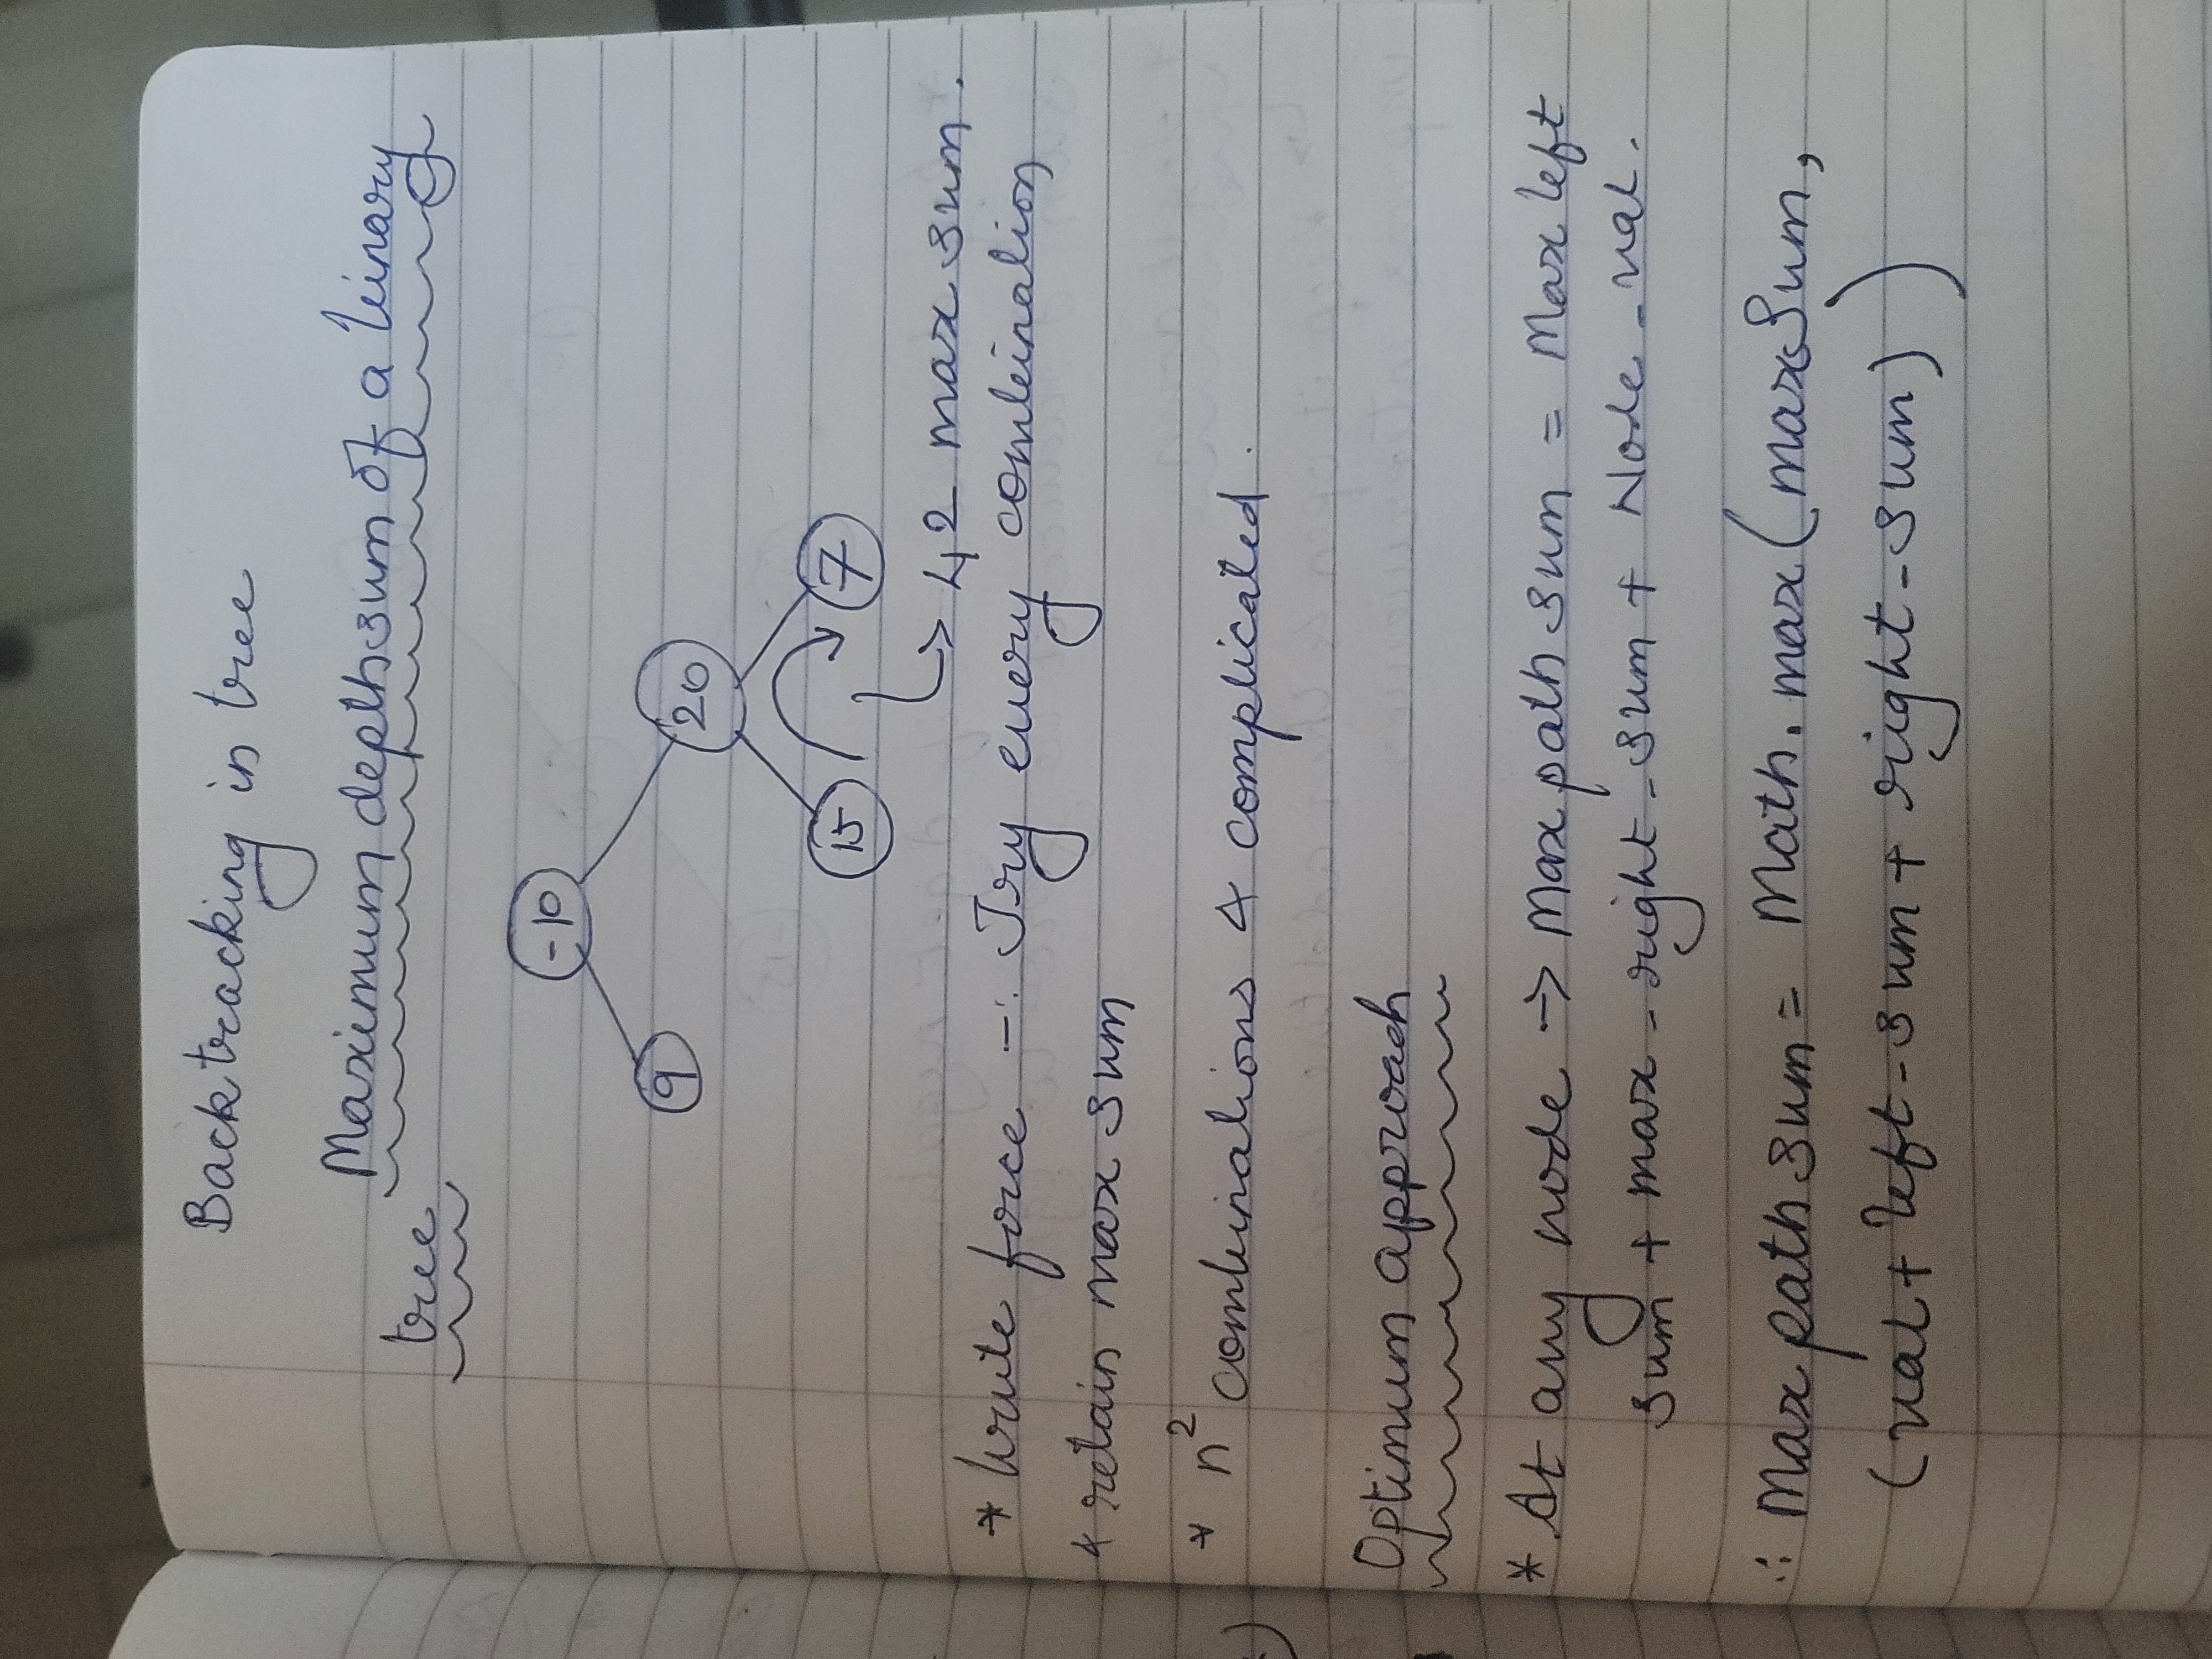 Backtracking in tree
Maximum depth sum of a binary
tree
-10
9
20
15
7
42 max sum.
* brute force -: Try every combination
& retain max sum
* n² combinations & complicated.
Optimum approach
* At any node → Max path sum = Max left
sum + max_right_sum + Node_val.
∴ Max path sum = Math.max(maxSum,
(val + left-sum + right-sum))